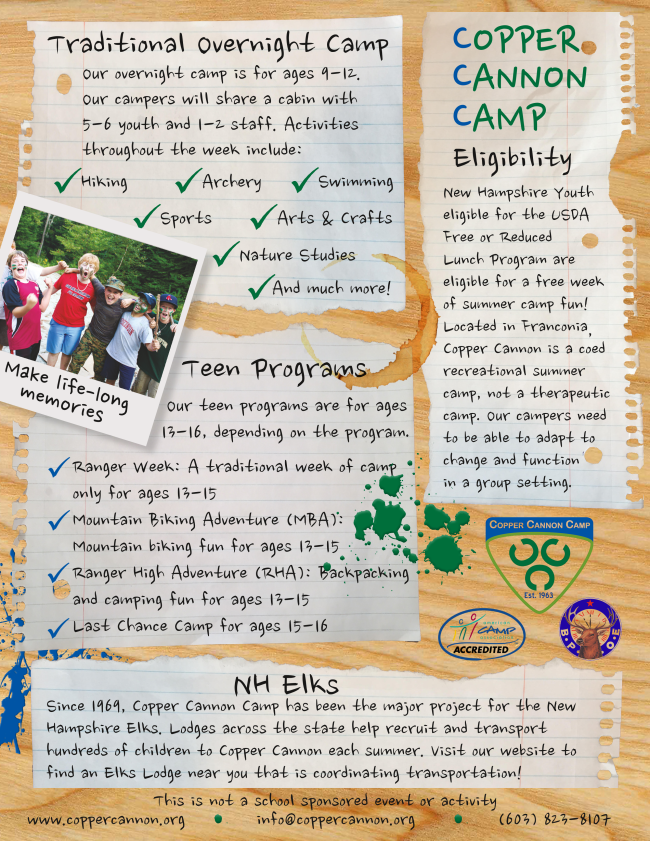 Traditional Overnight Camp
Our overnight camp is for ages 9-12.
Our campers will share a cabin with
5-6 youth and 1-2 staff. Activities
throughout the week include:
Hiking
Archery
Swimming
Sports
Arts & Crafts
Nature Studies
And much more!
Make life-long
memories
Teen Programs
Our teen programs are for ages
13-16, depending on the program.
Ranger Week: A traditional week of camp
only for ages 13-15
Mountain Biking Adventure (MBA):
Mountain biking fun for ages 13-15
Ranger High Adventure (RHA): Backpacking
and camping fun for ages 13-15
Last Chance Camp for ages 15-16
COPPER
CANNON
CAMP
Eligibility
New Hampshire Youth
eligible for the USDA
Free or Reduced
Lunch Program are
eligible for a free week
of summer camp fun!
Located in Franconia,
Copper Cannon is a coed
recreational summer
camp, not a therapeutic
camp. Our campers need
to be able to adapt to
change and function
in a group setting.
COPPER CANNON CAMP
Est. 1963
AMERICAN
CAMP
ASSOCIATION
ACCREDITED
B.P.O.E
NH Elks
Since 1969, Copper Cannon Camp has been the major project for the New
Hampshire Elks. Lodges across the state help recruit and transport
hundreds of children to Copper Cannon each summer. Visit our website to
find an Elks Lodge near you that is coordinating transportation!
This is not a school sponsored event or activity
www.coppercannon.org • info@coppercannon.org • (603) 823-8107